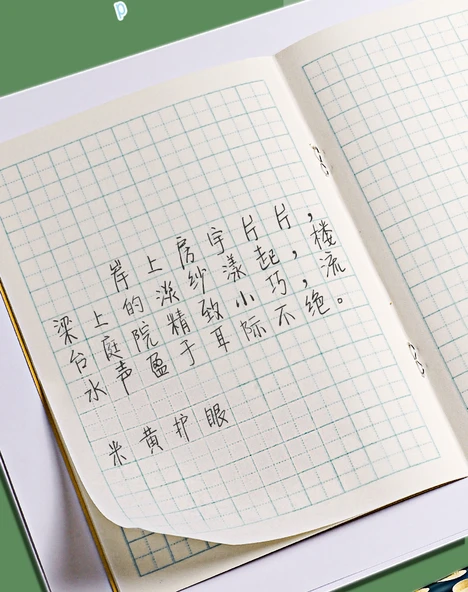 p
岸上房宇片片，
梁上的淡纱漾起，楼
台庭院精致小巧，流
水声盈于耳际不绝。
米黄护眼